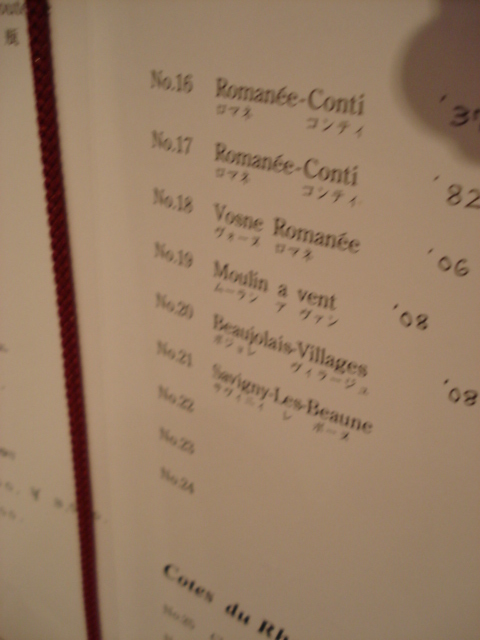 瓶
No.16 Romanée-Conti '37
ロマネ コンティ
No.17 Romanée-Conti '82
ロマネ コンティ
No.18 Vosne Romanée '06
ヴォーヌ ロマネ
No.19 Moulin a vent '08
ムーラン ア ヴァン
No.20 Beaujolais-Villages '08
ボジョレ ヴィラージュ
No.21 Savigny-Les-Beaune
サヴィニィ レ ボーヌ
No.22
No.23
No.24
Cotes du Rh
No.25